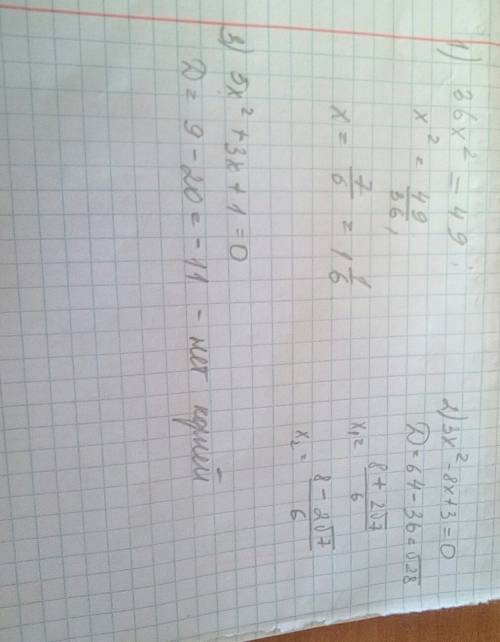 1) 36x² = 49;
x² = 49/36,
x = 7/6 = 1 1/6
2) 3x² - 8x + 3 = 0
D = 64 - 36 = √28
x₁ = (8 + 2√7)/6
x₂ = (8 - 2√7)/6
3) 5x² + 3x + 1 = 0
D = 9 - 20 = -11 - нет корней